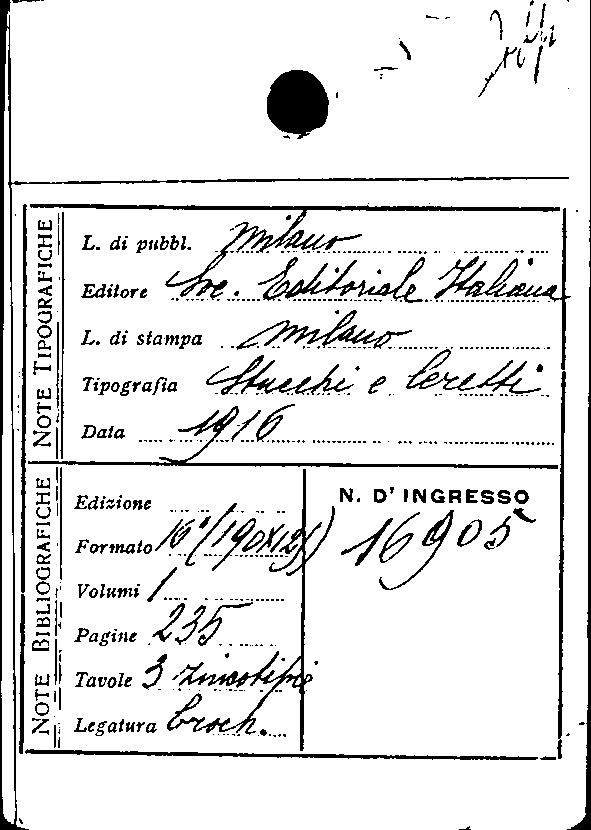 NOTE TIPOGRAFICHE
L. di pubbl. Milano
Editore Soc. Editoriale Italiana
L. di stampa Milano
Tipografia Stucchi e Ceretti
Data 1916
NOTE BIBLIOGRAFICHE
Edizione
Formato 16° (190x125)
Volumi 1
Pagine 235
Tavole 3 zincotipie
Legatura broch.
N. D' INGRESSO
16905